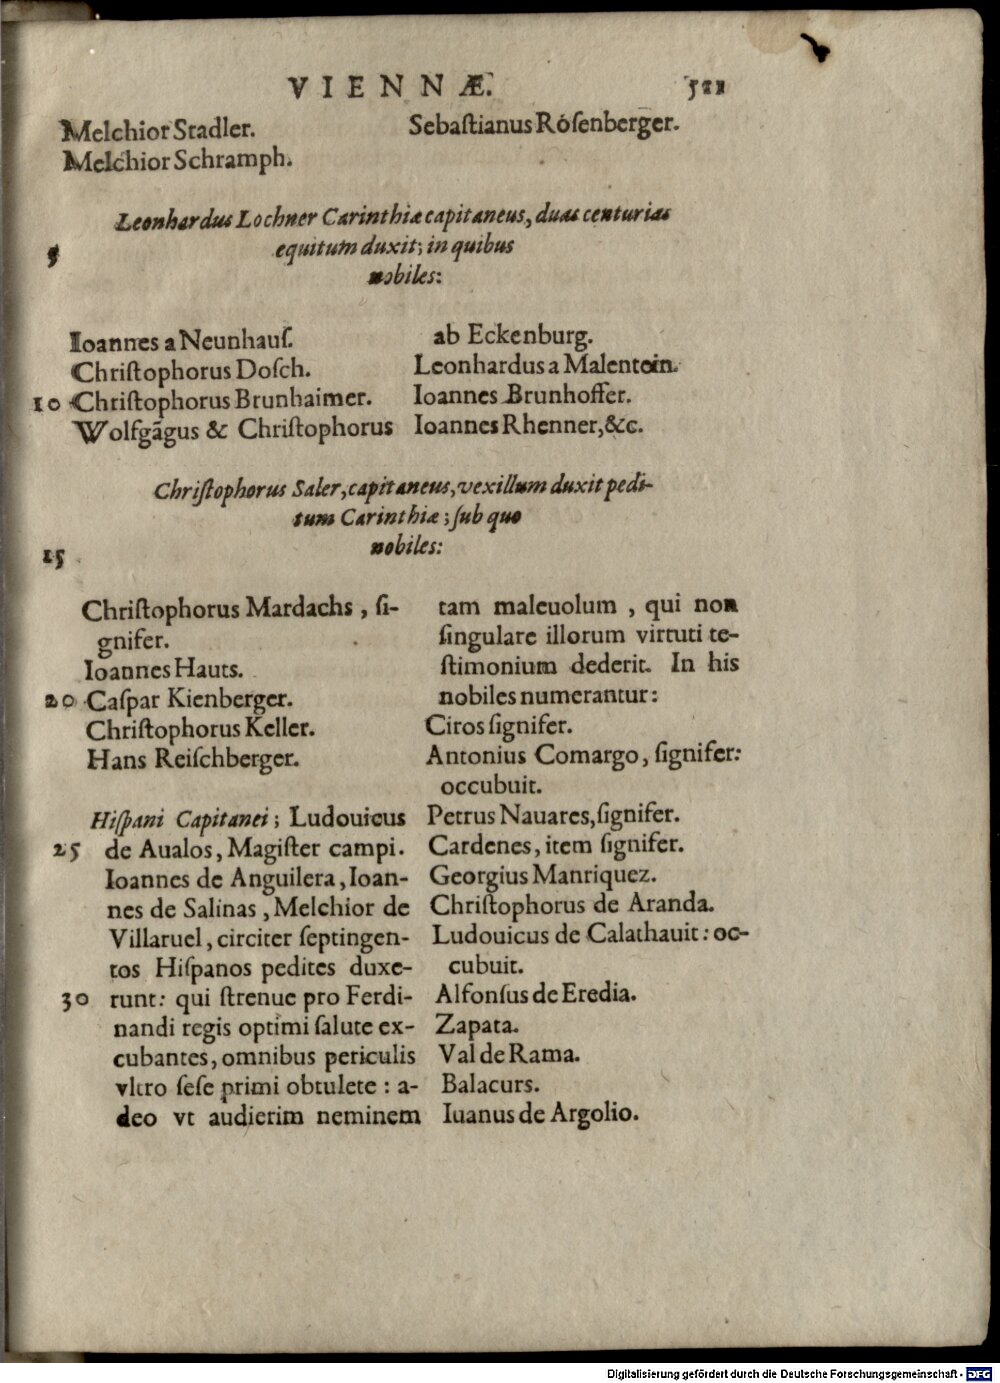 VIENNÆ. 511
Melchior Stadler.
Melchior Schramph.
Sebaſtianus Roſenberger.
Leonhardus Lochner Carinthiæ capitaneus, duas centurias
5 equitum duxit; in quibus
nobiles:
Ioannes a Neunhauſ.
Chriſtophorus Doſch.
10 Chriſtophorus Brunhaimer.
Wolfgãgus & Chriſtophorus
ab Eckenburg.
Leonhardus a Malentein.
Ioannes Brunhoffer.
Ioannes Rhenner, &c.
Chriſtophorus Saler, capitaneus, vexillum duxit pedi-
tum Carinthiæ; ſub quo
15 nobiles:
Chriſtophorus Mardachs, ſi-
gnifer.
Ioannes Hauts.
20 Caſpar Kienberger.
Chriſtophorus Keller.
Hans Reiſchberger.
Hiſpani Capitanei; Ludouicus
25 de Aualos, Magiſter campi.
Ioannes de Anguilera, Ioan-
nes de Salinas, Melchior de
Villaruel, circiter ſeptingen-
tos Hiſpanos pedites duxe-
30 runt: qui ſtrenue pro Ferdi-
nandi regis optimi ſalute ex-
cubantes, omnibus periculis
vltro ſeſe primi obtulete: a-
deo vt audierim neminem
tam maleuolum, qui non
ſingulare illorum virtuti te-
ſtimonium dederit. In his
nobiles numerantur:
Ciros ſignifer.
Antonius Comargo, ſignifer:
occubuit.
Petrus Nauares, ſignifer.
Cardenes, item ſignifer.
Georgius Manriquez.
Chriſtophorus de Aranda.
Ludouicus de Calathauit: oc-
cubuit.
Alfonſus de Eredia.
Zapata.
Val de Rama.
Balacurs.
Iuanus de Argolio.
Digitalisierung gefördert durch die Deutsche Forschungsgemeinschaft - DFG